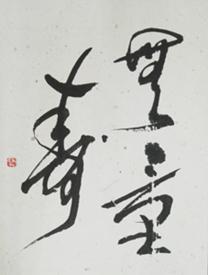 無量
壽